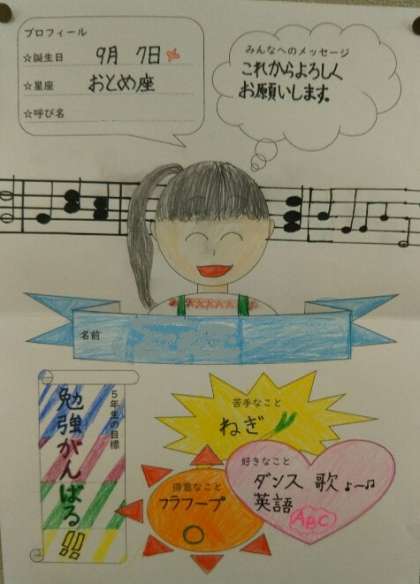 プロフィール
☆誕生日 9月 7日
☆星座 おとめ座
☆呼び名
みんなへのメッセージ
これからよろしく
お願いします。
名前
5年生の目標
勉強がんばる!!
苦手なこと
ねぎ
得意なこと
フラフープ
好きなこと
ダンス 歌♪〜♫
英語
ABC